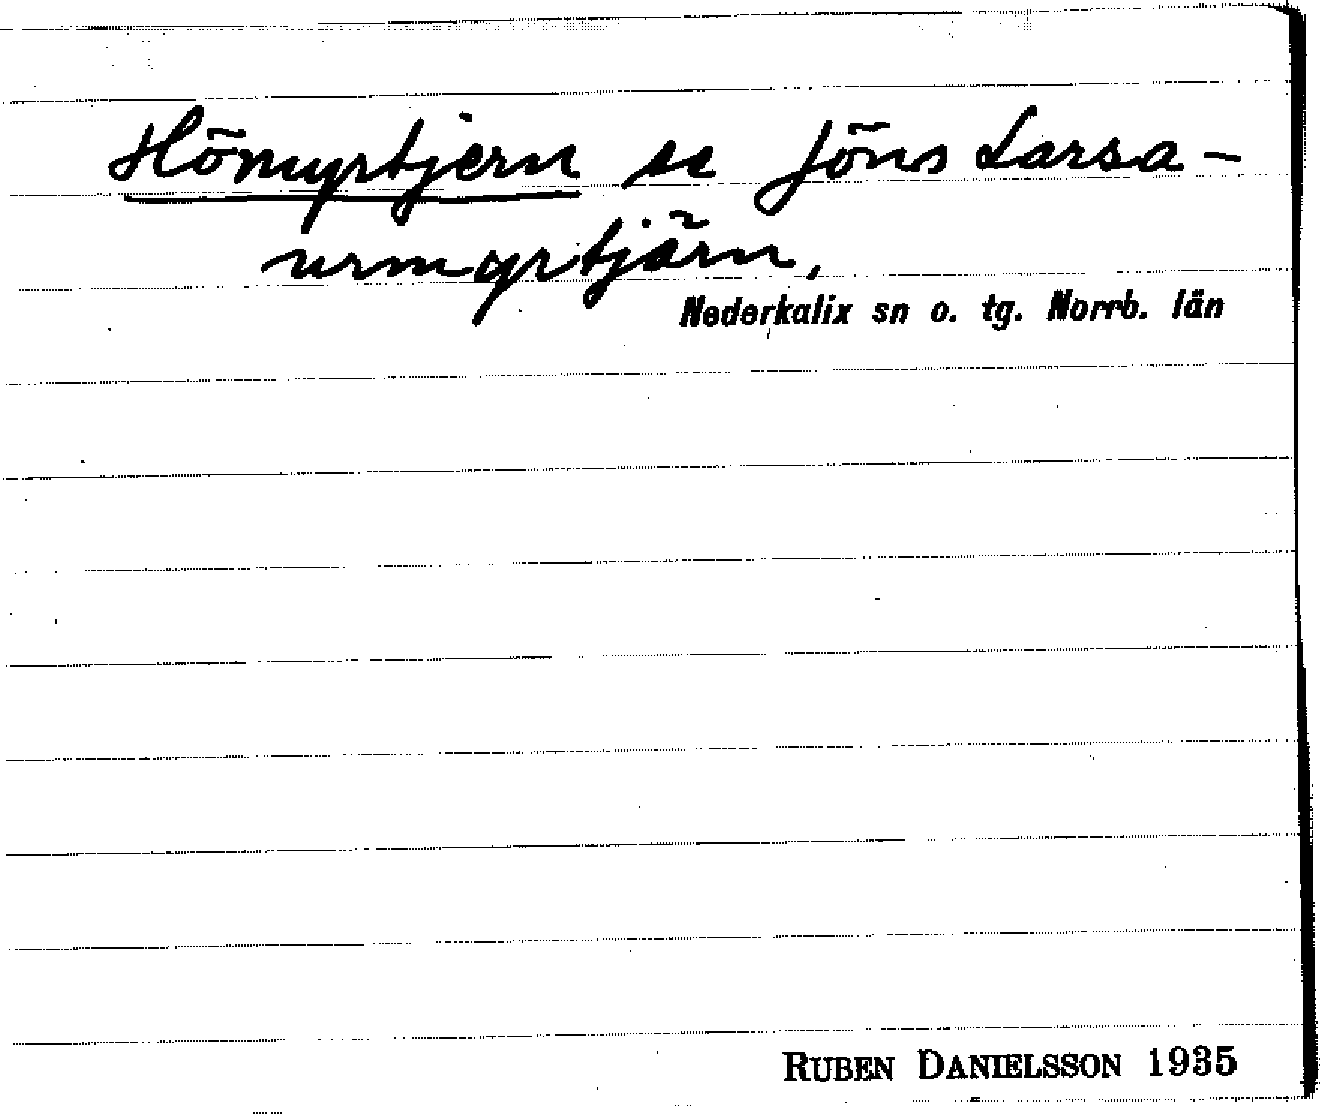 Hömyrtjern se Jöns Larsa-
urmyrtjärn,
Nederkalix sn o. tg. Norrb. län
RUBEN DANIELSSON 1935